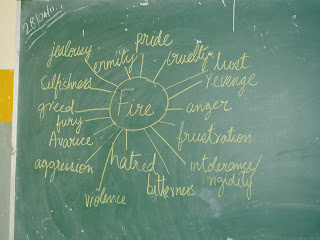 28/04/11
pride
jealousy
enmity
cruelty
lust
revenge
selfishness
greed
Fire
anger
fury
Avarice
fructration
aggression
hatred
intolerance/
rigidity
bitterness
violence